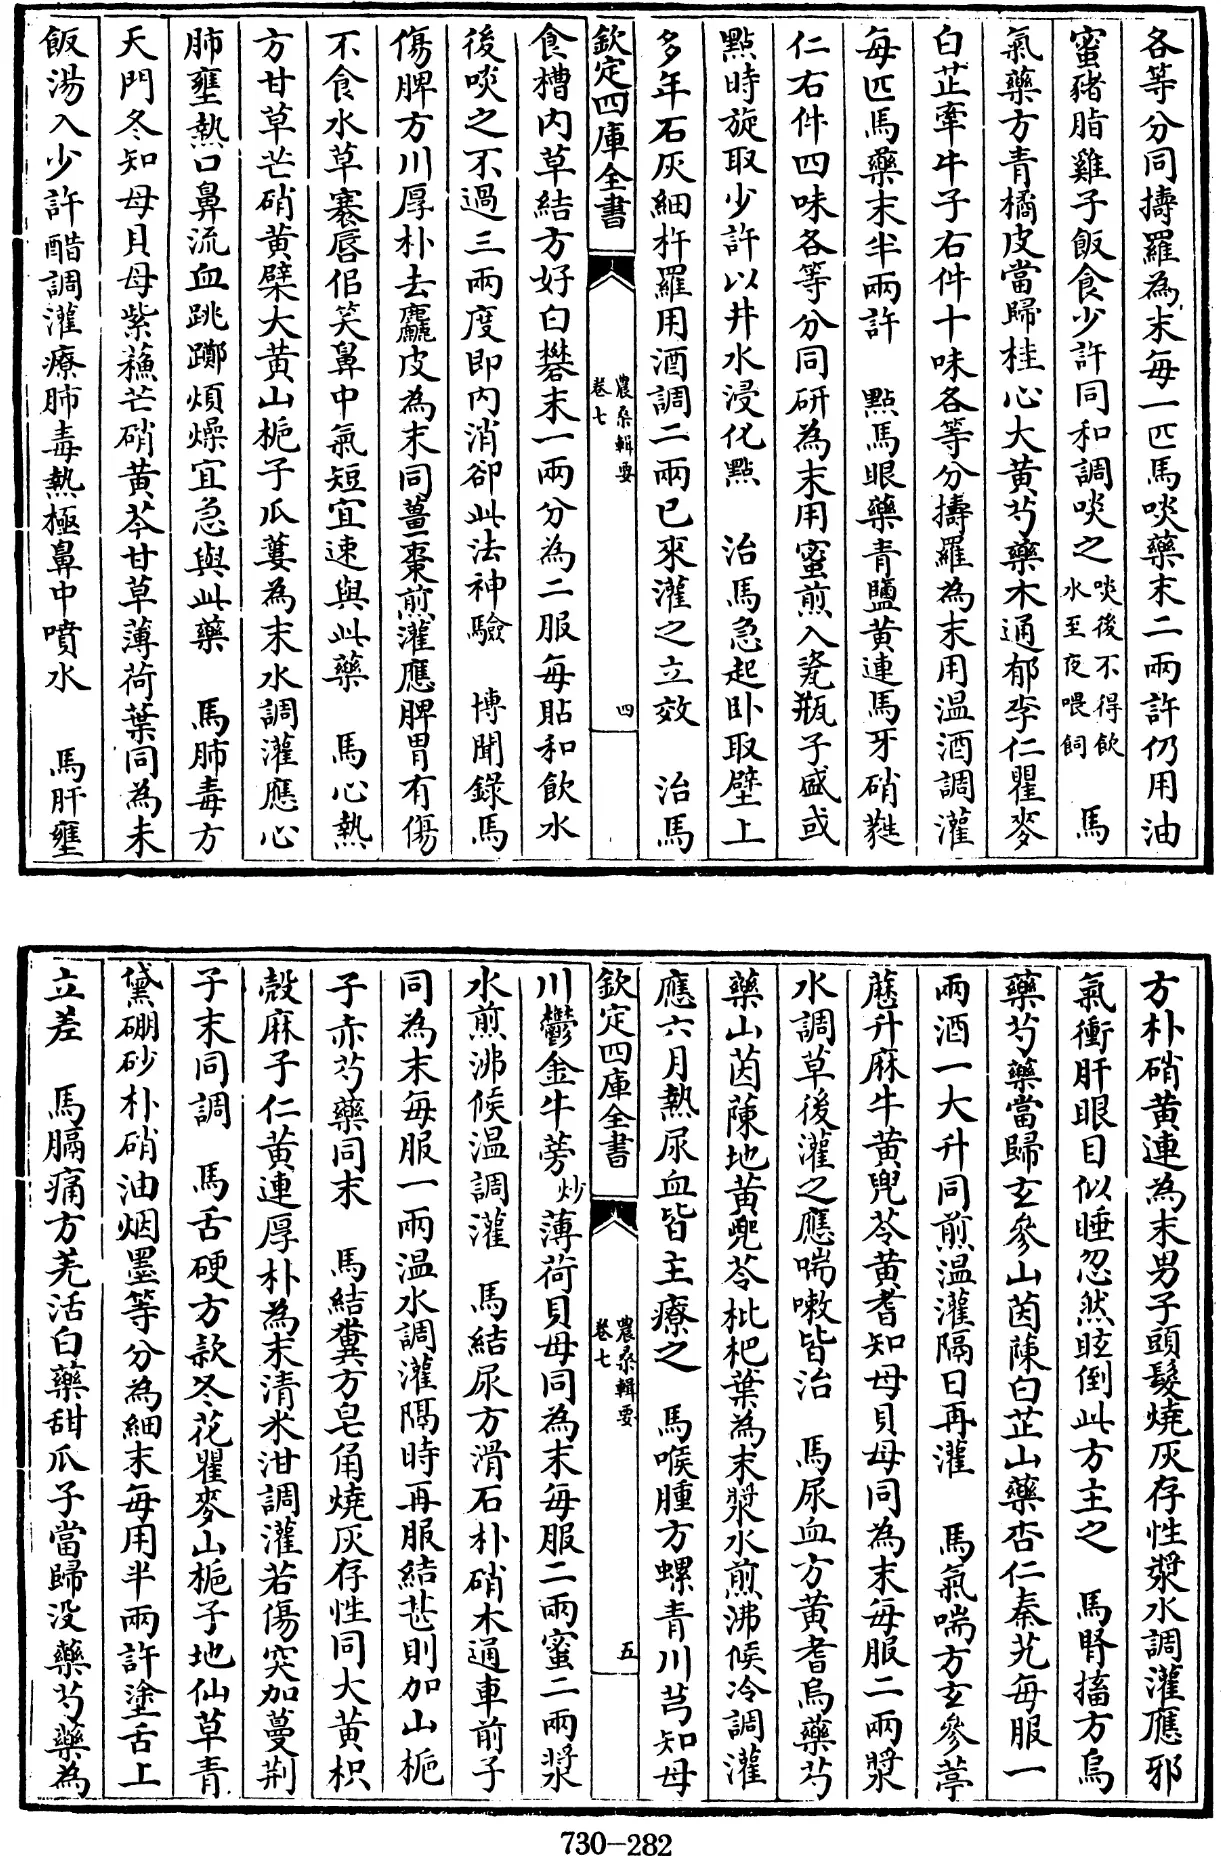 各等分同擣羅為末每一匹馬啖藥末二兩許仍用油
蜜豬脂雞子飯食少許同和調啖之啖後不得飲水至夜喂飼　馬
氣藥方青橘皮當歸桂心大黃芍藥木通郁李仁瞿麥
白芷牽牛子右件十味各等分擣羅為末用温酒調灌
每匹馬藥末半兩許　點馬眼藥青鹽黃連馬牙硝蕤
仁右件四味各等分同研為末用蜜煎入瓷瓶子盛或
點時旋取少許以井水浸化點　治馬急起卧取壁上
多年石灰細杵羅用酒調二兩已來灌之立效　治馬
欽定四庫全書　農桑輯要卷七　四
食槽内草結方好白礬末一兩分為二服每貼和飲水
後啖之不過三兩度即内消卻此法神驗　博聞錄馬
傷脾方川厚朴去麤皮為末同薑棗煎灌應脾胃有傷
不食水草褰唇佀笑鼻中氣短宜速與此藥　馬心熱
方甘草芒硝黃檗大黃山梔子瓜蔞為末水調灌應心
肺壅熱口鼻流血跳躑煩燥宜急與此藥　馬肺毒方
天門冬知母貝母紫蘓芒硝黃芩甘草薄荷葉同為末
飯湯入少許醋調灌療肺毒熱極鼻中噴水　馬肝壅
方朴硝黃連為末男子頭髮燒灰存性漿水調灌應邪
氣衝肝眼目似睡忽然眩倒此方主之　馬腎搐方烏
藥芍藥當歸玄參山茵蔯白芷山藥杏仁秦艽每服一
兩酒一大升同煎温灌隔日再灌　馬氣喘方玄參葶
藶升麻牛黃兜苓黃耆知母貝母同為末每服二兩漿
水調草後灌之應喘嗽皆治　馬尿血方黃耆烏藥芍
藥山茵蔯地黃兜苓枇杷葉為末漿水煎沸候冷調灌
應六月熱尿血皆主療之　馬喉腫方螺青川芎知母
欽定四庫全書　農桑輯要卷七　五
川鬱金牛蒡炒薄荷貝母同為末每服二兩蜜二兩漿
水煎沸候温調灌　馬結尿方滑石朴硝木通車前子
同為末每服一兩温水調灌隔時再服結甚則加山梔
子赤芍藥同末　馬結糞方皂角燒灰存性同大黃枳
殼麻子仁黃連厚朴為末清米泔調灌若傷突加蔓荆
子末同調　馬舌硬方款冬花瞿麥山梔子地仙草青
黛硼砂朴硝油烟墨等分為細末每用半兩許塗舌上
立差　馬膈痛方羌活白藥甜瓜子當歸没藥芍藥為
730-282